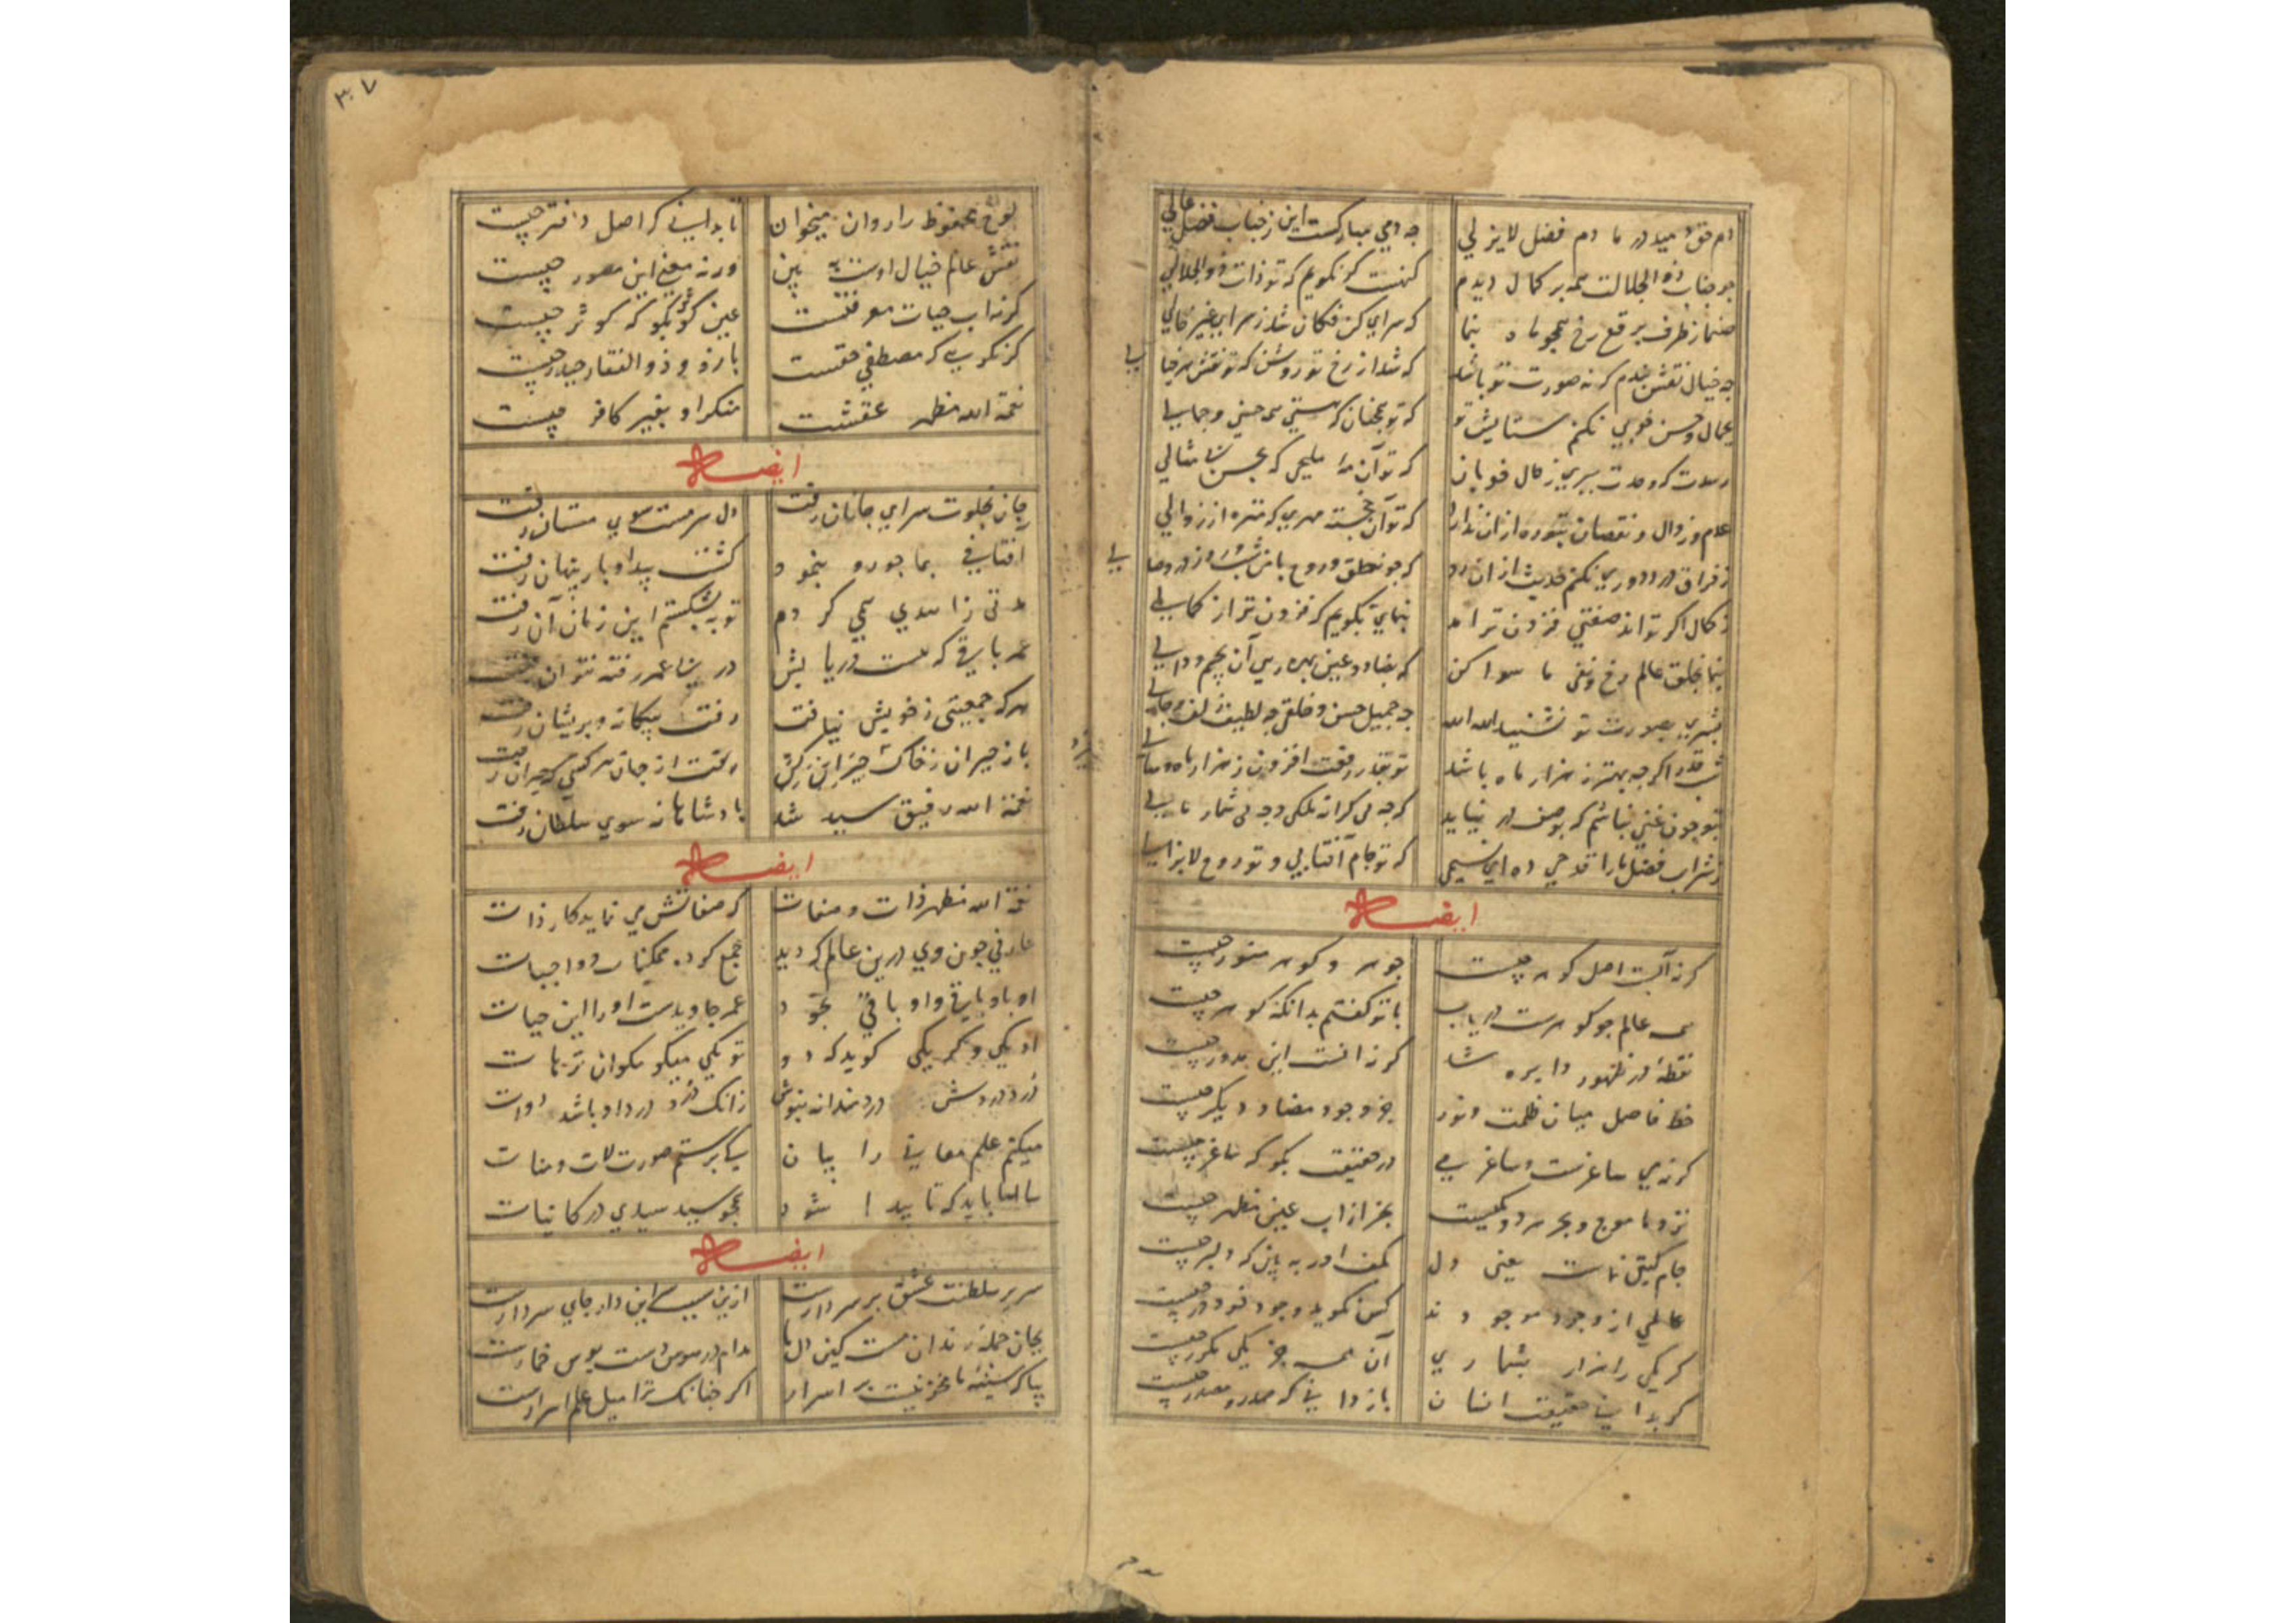 دم حق دمید در ما دم فضل لایزلی
چه دمی مبارکست این ز جناب فضل عالی
چو جناب ذو الجلالت همه بر کمال دیدم
کنهست کر نکویم که تو ذات ذو الجلالی
صنما ز طرف برقع رخ همچو ماه بنما
که سرای کن فکان شد ز سرای غیر خالی
چه خیال نقش بندم که نه صورت تو باشد
که شد از رخ تو روشن که تو نقش هر خیا
لی
بجمال و حسن خوبی نکنم ستایش تو
که تو همچنان که هستی همه حسنی و جمالی
رسدت که وحدت ببری ز مال خوبان
که تو آن مه ملیحی که بحسن بی مثالی
عدم و زوال و نقصان بتو ره از ان ندارد
که تو آن خجسته مهری که منزه از زوالی
ز فراق درد دوری نکنم حدیث از ان رو
که چو نطق و روح با من شب و روز در وصا
لی
ز کمال اکر تواند صفتی فزون تر امد
بنمای تا بکویم که فزون تر از کمالی
بنما بخلق عالم رخ و نفی ما سوا کن
بشری بصورت تو نشنید الله الله
چه جمیل حسن و خلق چه لطیف زلف و خالی
شب قدر اکرچه بهتر ز هزار ماه باشد
تو بقدر رفعت افزون ز هزار ماه و سا
لی
بتو چون غنی نباشم که بوصف در نیاید
که چه بی کرانه ملکی و چه بی شمار مالی
ز شراب فضل ما را قدحی ده ای نسیمی
که تو جام آفتابی و تو روح لایزالی
ایضا
کرنه آبست اصل کوهر چیست
جوهر و کوهر منور چیست
همه عالم چو کوهرست دریاب
با تو کفتم بدانکه کوهر چیست
نقطهٔ در ظهور دایره شد
کرنه انست این مدور چیست
خط فاصل میان ظلمت و نور
جز وجود مضاف دیکر چیست
کرنه می ساغرست و ساغر می
در حقیقت بکو که ساغر چیست
نزد ما موج و بحر هر دو یکیست
بجز از اب عین مظهر چیست
جام کیتی نماست یعنی دل
بکف اور به بین که دلبر چیست
عالمی از وجود موجودند
کس نکوید وجود خود در چیست
کر یکی را هزار بشماری
آن همه جز یکی مکرر چیست
کر بدانی حقیقت انسان
باز دانی که صدر و مصدر چیست
۳۰۷
لوح محفوظ را روان میخوان
تا بدانی که اصل دفتر چیست
نقش عالم خیال اوست به بین
ورنه معنی این مصور چیست
کرنه اب حیات معرفتست
عین کوثر بکو که کوثر چیست
کرنکویی که مصطفی حقست
بارز و ذو الفقار حیدر چیست
نعمة الله مظهر عشقست
منکر او بغیر کافر چیست
ایضا
جان بخلوت سرای جانان رفت
دل سرمست سوی مستان رفت
آفتابی بما چو رو بنمود
کشت پیدا و باز پنهان رفت
مدتی زاهدی همی کردم
توبه بشکستم این زمان آن رفت
عمر باقی که هست دریابش
در پی عمر رفته نتوان رفت
هرکه جمعیتی ز خویش نیافت
رفت بیکانه و پریشان رفت
باز حیران ز خاک خیزان
رفت از جهان هر کسی که حیران رفت
نعمة الله رفیق سید شد
پادشاهانه سوی سلطان رفت
ایضا
نعمة الله مظهر ذات و صفات
که صفاتش می نماید کار ذات
عارفی چون وی درین عالم که دید
جمع کرده ممکنات و واجبات
او باو باقی و او باقی بخود
عمر جاویدست او را این حیات
او یکی و کر یکی کوید که دو
تو یکی میکو مکو ان ترهات
درد دردش دردمندانه بنوش
زانک درد درد او باشد دوات
میکنم علم معانی را بیان
کی پرستم صورت لات و منات
سالها باید که تا پیدا شود
همچو سید سیدی در کاینات
ایضا
سریر سلطنت عشق بر سر دارست
ازین سبب این دار جای سردارست
بجان جملهٔ رندان مست کین دل ما
مدام در هوس مست بوس خمارست
بیا که سینهٔ ما مخزنیست پر اسرار
اکر چنانک ترا میل علم اسرارست